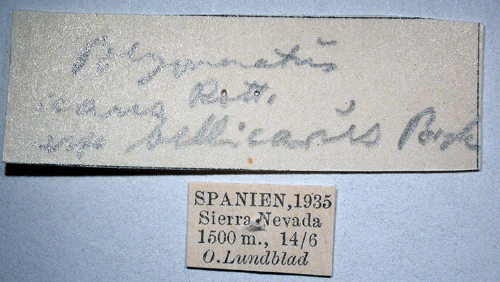 Polyommatus
icarus Rott.
ssp bellicarus
SPANIEN, 1935
Sierra Nevada
1500 m., 14/6
O. Lundblad